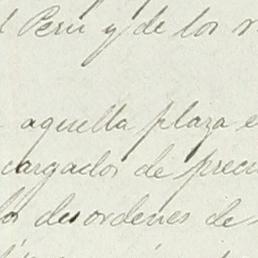 Peru y de los
aquella plaza e
cargados de precu
los desordenes de